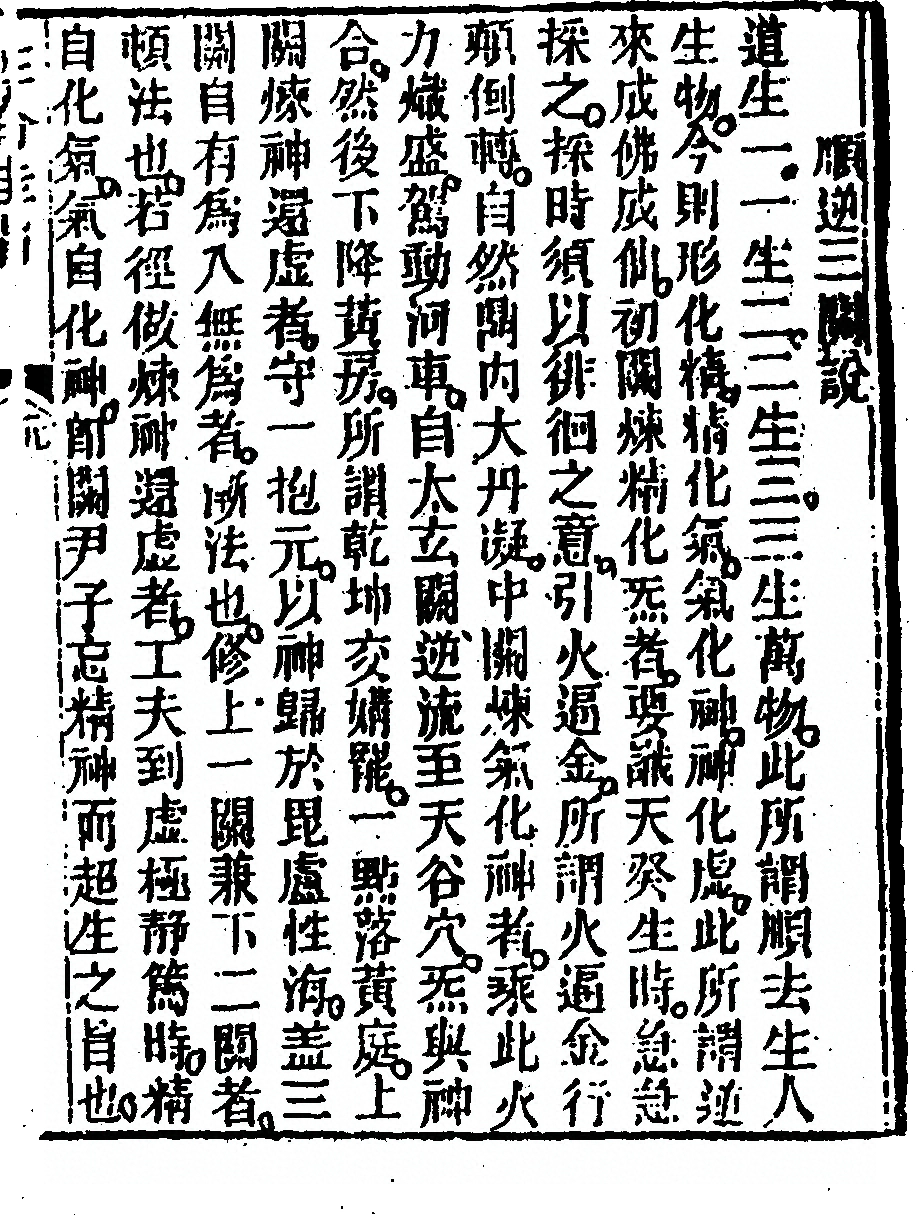 順逆三關說
道生一。一生二。二生三。三生萬物。此所謂順去生人
生物。今則形化精。精化氣。氣化神。神化虛。此所謂逆
來成佛成仙。初關煉精化炁者。要識天癸生時。急急
採之。採時須以徘徊之意。引火逼金。所謂火逼金行
顛倒轉。自然鼎內大丹凝。中關煉氣化神者。乘此火
力熾盛。駕動河車。自太玄關逆流至天谷穴。炁與神
合。然後下降黃房。所謂乾坤交媾罷。一點落黃庭。上
關煉神還虛者。守一抱元。以神歸於毘盧性海。蓋三
關自有為入無為者。漸法也。修上一關兼下二關者。
頓法也。若徑做煉神還虛者。工夫到虛極靜篤時。精
自化氣。氣自化神。即關尹子忘精神而超生之旨也。
元